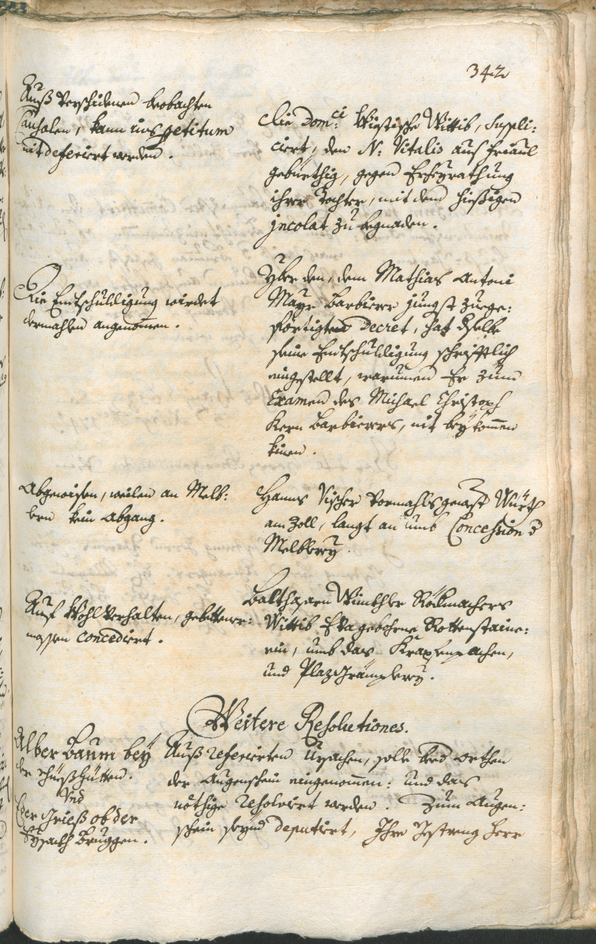 342
Auß verschidenen beobachten
kan ins petitum
nit deferiert werden.
Die Dom:ci Wittib, suppli:
ciert, dem N: Vitalis aus Friaul
gebürthig, gegen Erheyrathung
ihrer Tochter, mit dem hießigen
jncolat zu begnaden.
Die Entschuldigung würdet
dermahlen angenommen.
Yber den, dem Mathias Antoni
Mayr Barbierer jüngst
Decret, hat dselbe
seine Entschuldigung schrifftlich
eingestellt, warumen Er zum
Examen des Michael Christoph
Kern Barbierers, nit beykommen
könen.
Abgewisen, weilen an Melb:
lern kein Abgang.
Hanns Vischer vormahls gewest Würth
am Zoll, langt an umb Concession d
Melblerey.
Auf Wohlverhalten, gebettner:
massen concediert.
Balthasarn Rößlmachers
Wittib Eva gebohrne Rottenstaine:
rin, umb das Krapfenpachen,
und Plaz
Weitere Resolutiones.
Alber Baum bey
der Schüeßhütten.
Und
der Grieß ob der
Bruggen.
Auß referierten Ursachen, solle beed orthen
der Augenschein eingenommen: und das
nöthige resolviert werden. Zum Augen:
schein seynd deputiert, Ihro Gestreng Herr